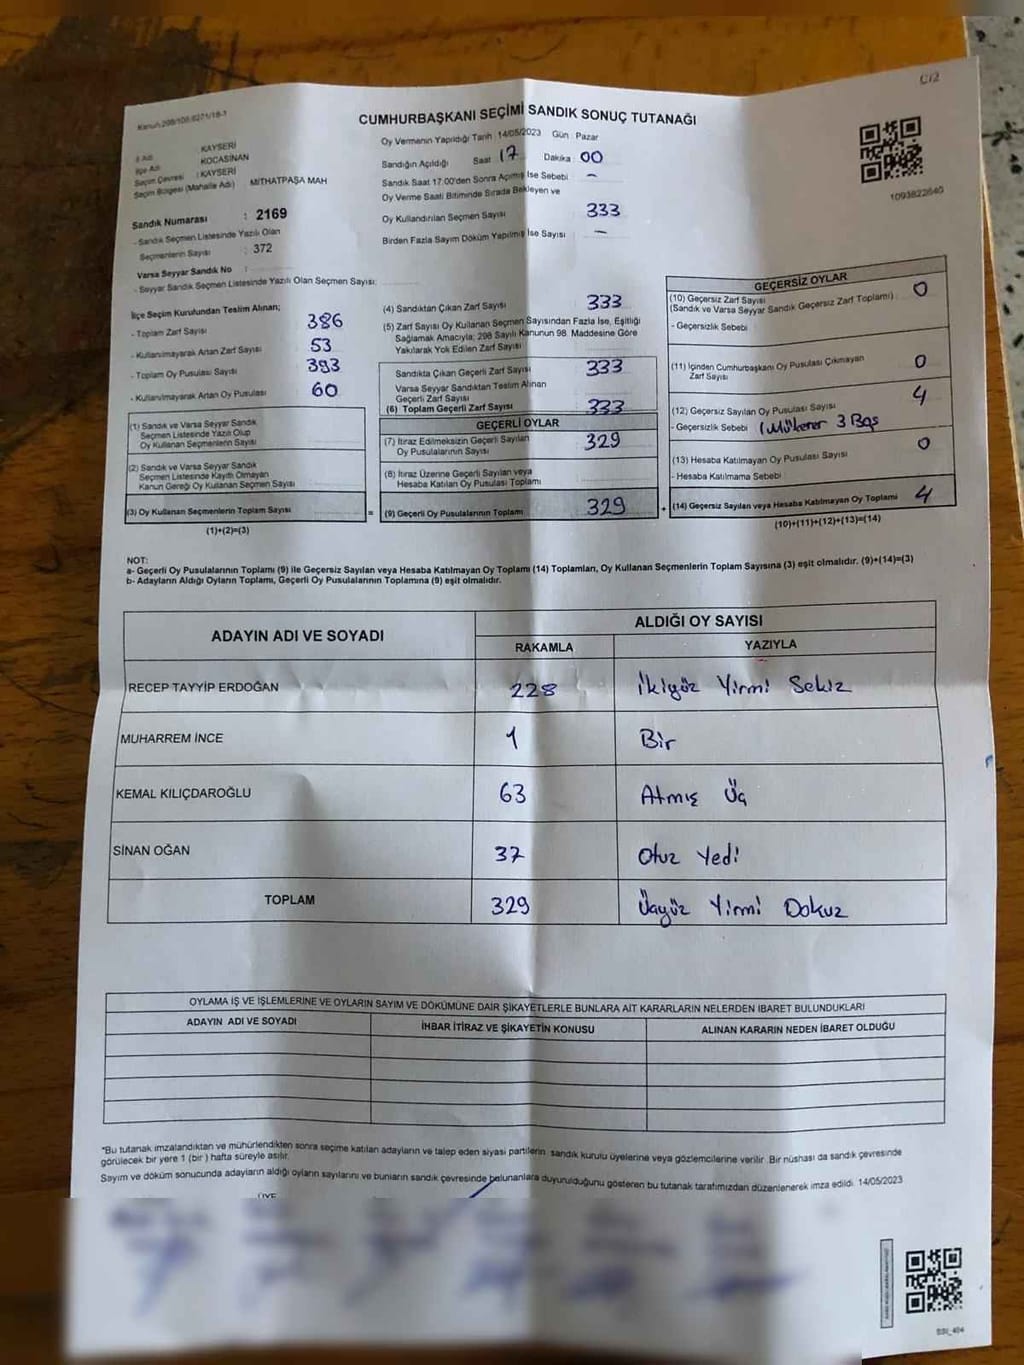 C/2
CUMHURBAŞKANI SEÇİMİ SANDIK SONUÇ TUTANAĞI
İl Adı : KAYSERİ
İlçe Adı : KOCASİNAN
Seçim Çevresi : KAYSERİ
Seçim Bölgesi (Mahalle Adı) : MİTHATPAŞA MAH
Sandık Numarası : 2169
- Sandık Seçmen Listesinde Yazılı Olan
Seçmenlerin Sayısı : 372
Varsa Seyyar Sandık No :
- Seyyar Sandık Seçmen Listesinde Yazılı Olan Seçmen Sayısı:
Oy Vermenin Yapıldığı Tarih : 14/05/2023 Gün : Pazar
Sandığın Açıldığı Saat 17 Dakika 00
Sandık Saat 17:00'den Sonra Açılmış İse Sebebi -
Oy Verme Saati Bitiminde Sırada Bekleyen ve
Oy Kullandırılan Seçmen Sayısı 333
Birden Fazla Sayım Döküm Yapılmış İse Sayısı -
1093822640
İlçe Seçim Kurulundan Teslim Alınan;
- Toplam Zarf Sayısı 386
- Kullanılmayarak Artan Zarf Sayısı 53
- Toplam Oy Pusulası Sayısı 393
- Kullanılmayarak Artan Oy Pusulası 60
(1) Sandık ve Varsa Seyyar Sandık
Seçmen Listesinde Yazılı Olup
Oy Kullanan Seçmenlerin Sayısı
(2) Sandık ve Varsa Seyyar Sandık
Seçmen Listesinde Kayıtlı Olmayan
Kanun Gereği Oy Kullanan Seçmen Sayısı
(3) Oy Kullanan Seçmenlerin Toplam Sayısı =
(1)+(2)=(3)
(4) Sandıktan Çıkan Zarf Sayısı 333
(5) Zarf Sayısı Oy Kullanan Seçmen Sayısından Fazla İse, Eşitliği
Sağlamak Amacıyla; 298 Sayılı Kanunun 98. Maddesine Göre
Yakılarak Yok Edilen Zarf Sayısı
Sandıkta Çıkan Geçerli Zarf Sayısı 333
Varsa Seyyar Sandıktan Teslim Alınan
Geçerli Zarf Sayısı
(6) Toplam Geçerli Zarf Sayısı 333
GEÇERLİ OYLAR
(7) İtiraz Edilmeksizin Geçerli Sayılan
Oy Pusulalarının Sayısı 329
(8) İtiraz Üzerine Geçerli Sayılan veya
Hesaba Katılan Oy Pusulası Toplamı
(9) Geçerli Oy Pusulalarının Toplamı 329 +
GEÇERSİZ OYLAR
(10) Geçersiz Zarf Sayısı 0
(Sandık ve Varsa Seyyar Sandık Geçersiz Zarf Toplamı)
- Geçersizlik Sebebi
(11) İçinden Cumhurbaşkanı Oy Pusulası Çıkmayan
Zarf Sayısı 0
(12) Geçersiz Sayılan Oy Pusulası Sayısı 4
- Geçersizlik Sebebi 1 Mükerrer 3 Boş
(13) Hesaba Katılmayan Oy Pusulası Sayısı 0
- Hesaba Katılmama Sebebi
(14) Geçersiz Sayılan veya Hesaba Katılmayan Oy Toplamı 4
(10)+(11)+(12)+(13)=(14)
NOT:
a- Geçerli Oy Pusulalarının Toplamı (9) ile Geçersiz Sayılan veya Hesaba Katılmayan Oy Toplamı (14) Toplamları, Oy Kullanan Seçmenlerin Toplam Sayısına (3) eşit olmalıdır. (9)+(14)=(3)
b- Adayların Aldığı Oyların Toplamı, Geçerli Oy Pusulalarının Toplamına (9) eşit olmalıdır.
ADAYIN ADI VE SOYADI
ALDIĞI OY SAYISI
RAKAMLA YAZIYLA
RECEP TAYYİP ERDOĞAN 228 İkiyüz Yirmi Sekiz
MUHARREM İNCE 1 Bir
KEMAL KILIÇDAROĞLU 63 Atmış Üç
SİNAN OĞAN 37 Otuz Yedi
TOPLAM 329 Üçyüz Yirmi Dokuz
OYLAMA İŞ VE İŞLEMLERİNE VE OYLARIN SAYIM VE DÖKÜMÜNE DAİR ŞİKAYETLERLE BUNLARA AİT KARARLARIN NELERDEN İBARET BULUNDUKLARI
ADAYIN ADI VE SOYADI İHBAR İTİRAZ VE ŞİKAYETİN KONUSU ALINAN KARARIN NEDEN İBARET OLDUĞU
*Bu tutanak imzalandıktan ve mühürlendikten sonra seçime katılan adayların ve talep eden siyasi partilerin sandık kurulu üyelerine veya gözlemcilerine verilir. Bir nüshası da sandık çevresinde
görülecek bir yere 1 (bir ) hafta süreyle asılır.
Sayım ve döküm sonucunda adayların aldığı oyların sayılarını ve bunların sandık çevresinde bulunanlara duyurulduğunu gösteren bu tutanak tarafımızdan düzenlenerek imza edildi. 14/05/2023
ÜYE